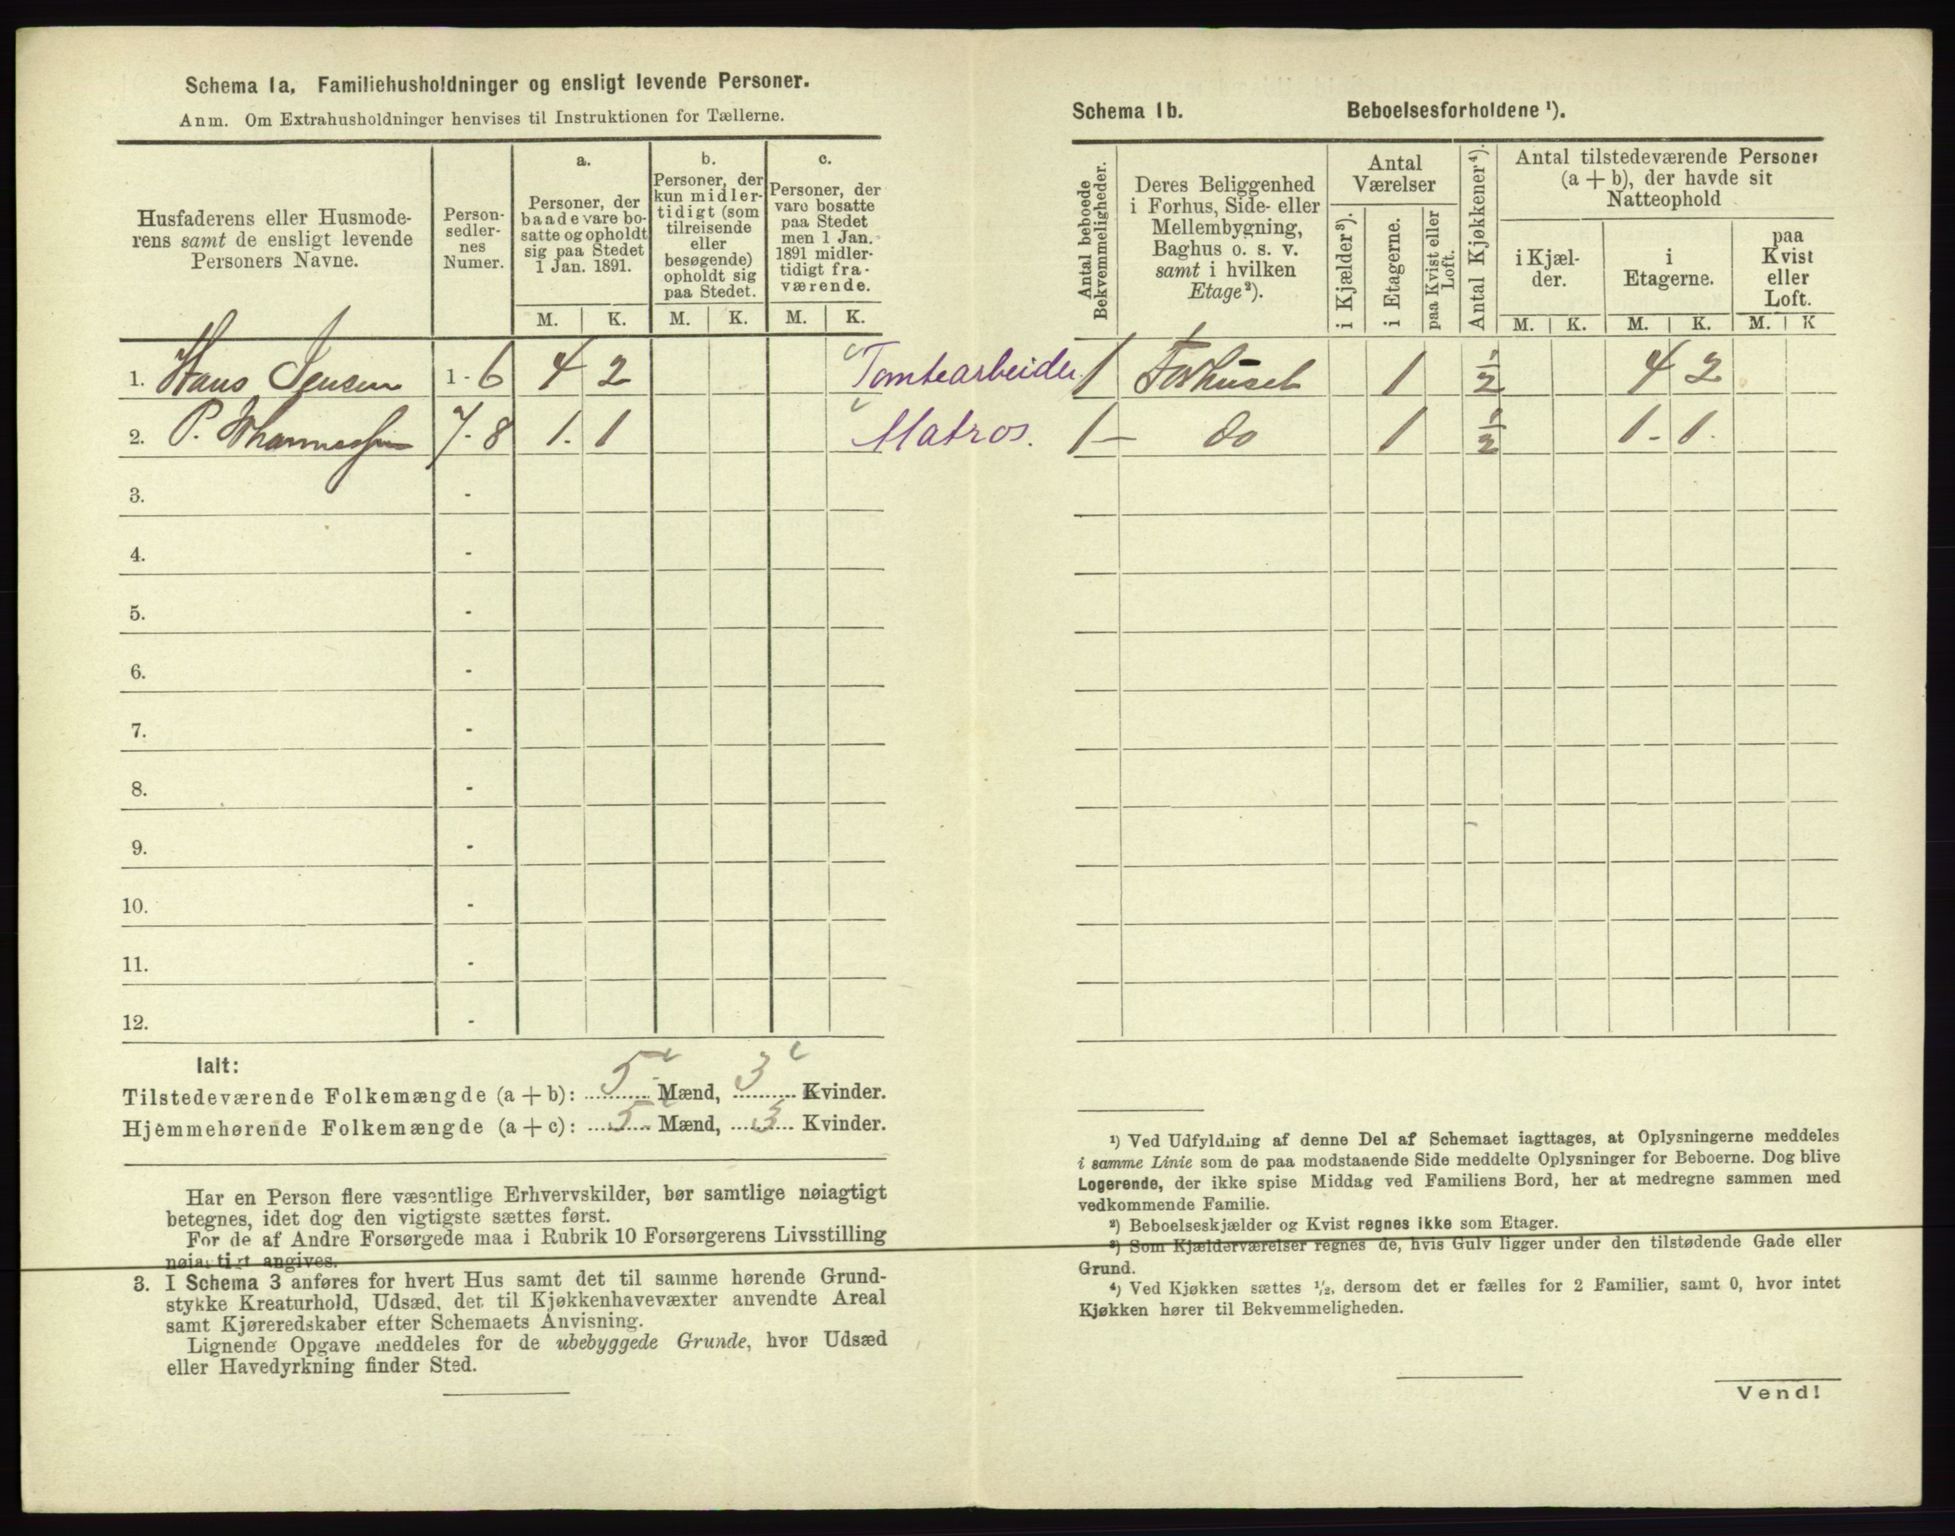 Schema 1a, Familiehusholdninger og ensligt levende Personer.
Anm. Om Extrahusholdninger henvises til Instruktionen for Tællerne.
Husfaderens eller Husmode-
rens samt de ensligt levende
Personers Navne.
Person-
sedler-
nes
Numer.
a.
Personer, der
baade vare bo-
satte og opholdt
sig paa Stedet
1 Jan. 1891.
b.
Personer, der
kun midler-
tidigt (som
tilreisende
eller
besøgende)
opholdt sig
paa Stedet.
c.
Personer, der
vare bosatte
paa Stedet
men 1 Jan.
1891 midler-
tidigt fra-
værende.
M. K. M. K. M. K.
1. Hans Jensen 1 - 6 4 2 Tomtearbeider
2. P. Johannessen 7 - 8 1. 1 Matros.
3. -
4. -
5. -
6. -
7. -
8. -
9. -
10. -
11. -
12. -
Ialt:
Tilstedeværende Folkemængde (a + b): 5 Mænd, 3 Kvinder.
Hjemmehørende Folkemængde (a + c): 5 Mænd, 3 Kvinder.
Har en Person flere væsentlige Erhvervskilder, bør samtlige nøiagtigt
betegnes, idet dog den vigtigste sættes først.
For de af Andre Forsørgede maa i Rubrik 10 Forsørgerens Livsstilling
nøiagtigt angives.
3. I Schema 3 anføres for hvert Hus samt det til samme hørende Grund-
stykke Kreaturhold, Udsæd, det til Kjøkkenhavevæxter anvendte Areal
samt Kjøreredskaber efter Schemaets Anvisning.
Lignende Opgave meddeles for de ubebyggede Grunde, hvor Udsæd
eller Havedyrkning finder Sted.
Schema 1b. Beboelsesforholdene ¹).
Antal beboede
Bekvemmeligheder.
Deres Beliggenhed
i Forhus, Side- eller
Mellembygning,
Baghus o. s. v.
samt i hvilken
Etage²).
Antal
Værelser
i Kjælder³).
i Etagerne.
paa Kvist eller
Loft.
Antal Kjøkkener⁴).
Antal tilstedeværende Personer
(a + b), der havde sit
Natteophold
i Kjæl-
der.
i
Etagerne.
paa
Kvist
eller
Loft.
M. K. M. K. M. K
1 Forhuset 1 ½ 4 2
1 — do 1 ½ 1 - 1.
¹) Ved Udfyldning af denne Del af Schemaet iagttages, at Oplysningerne meddeles
i samme Linie som de paa modstaaende Side meddelte Oplysninger for Beboerne. Dog blive
Logerende, der ikke spise Middag ved Familiens Bord, her at medregne sammen med
vedkommende Familie.
²) Beboelseskjælder og Kvist regnes ikke som Etager.
³) Som Kjælderværelser regnes de, hvis Gulv ligger under den tilstødende Gade eller
Grund.
⁴) Ved Kjøkken sættes ½, dersom det er fælles for 2 Familier, samt 0, hvor intet
Kjøkken hører til Bekvemmeligheden.
Vend!